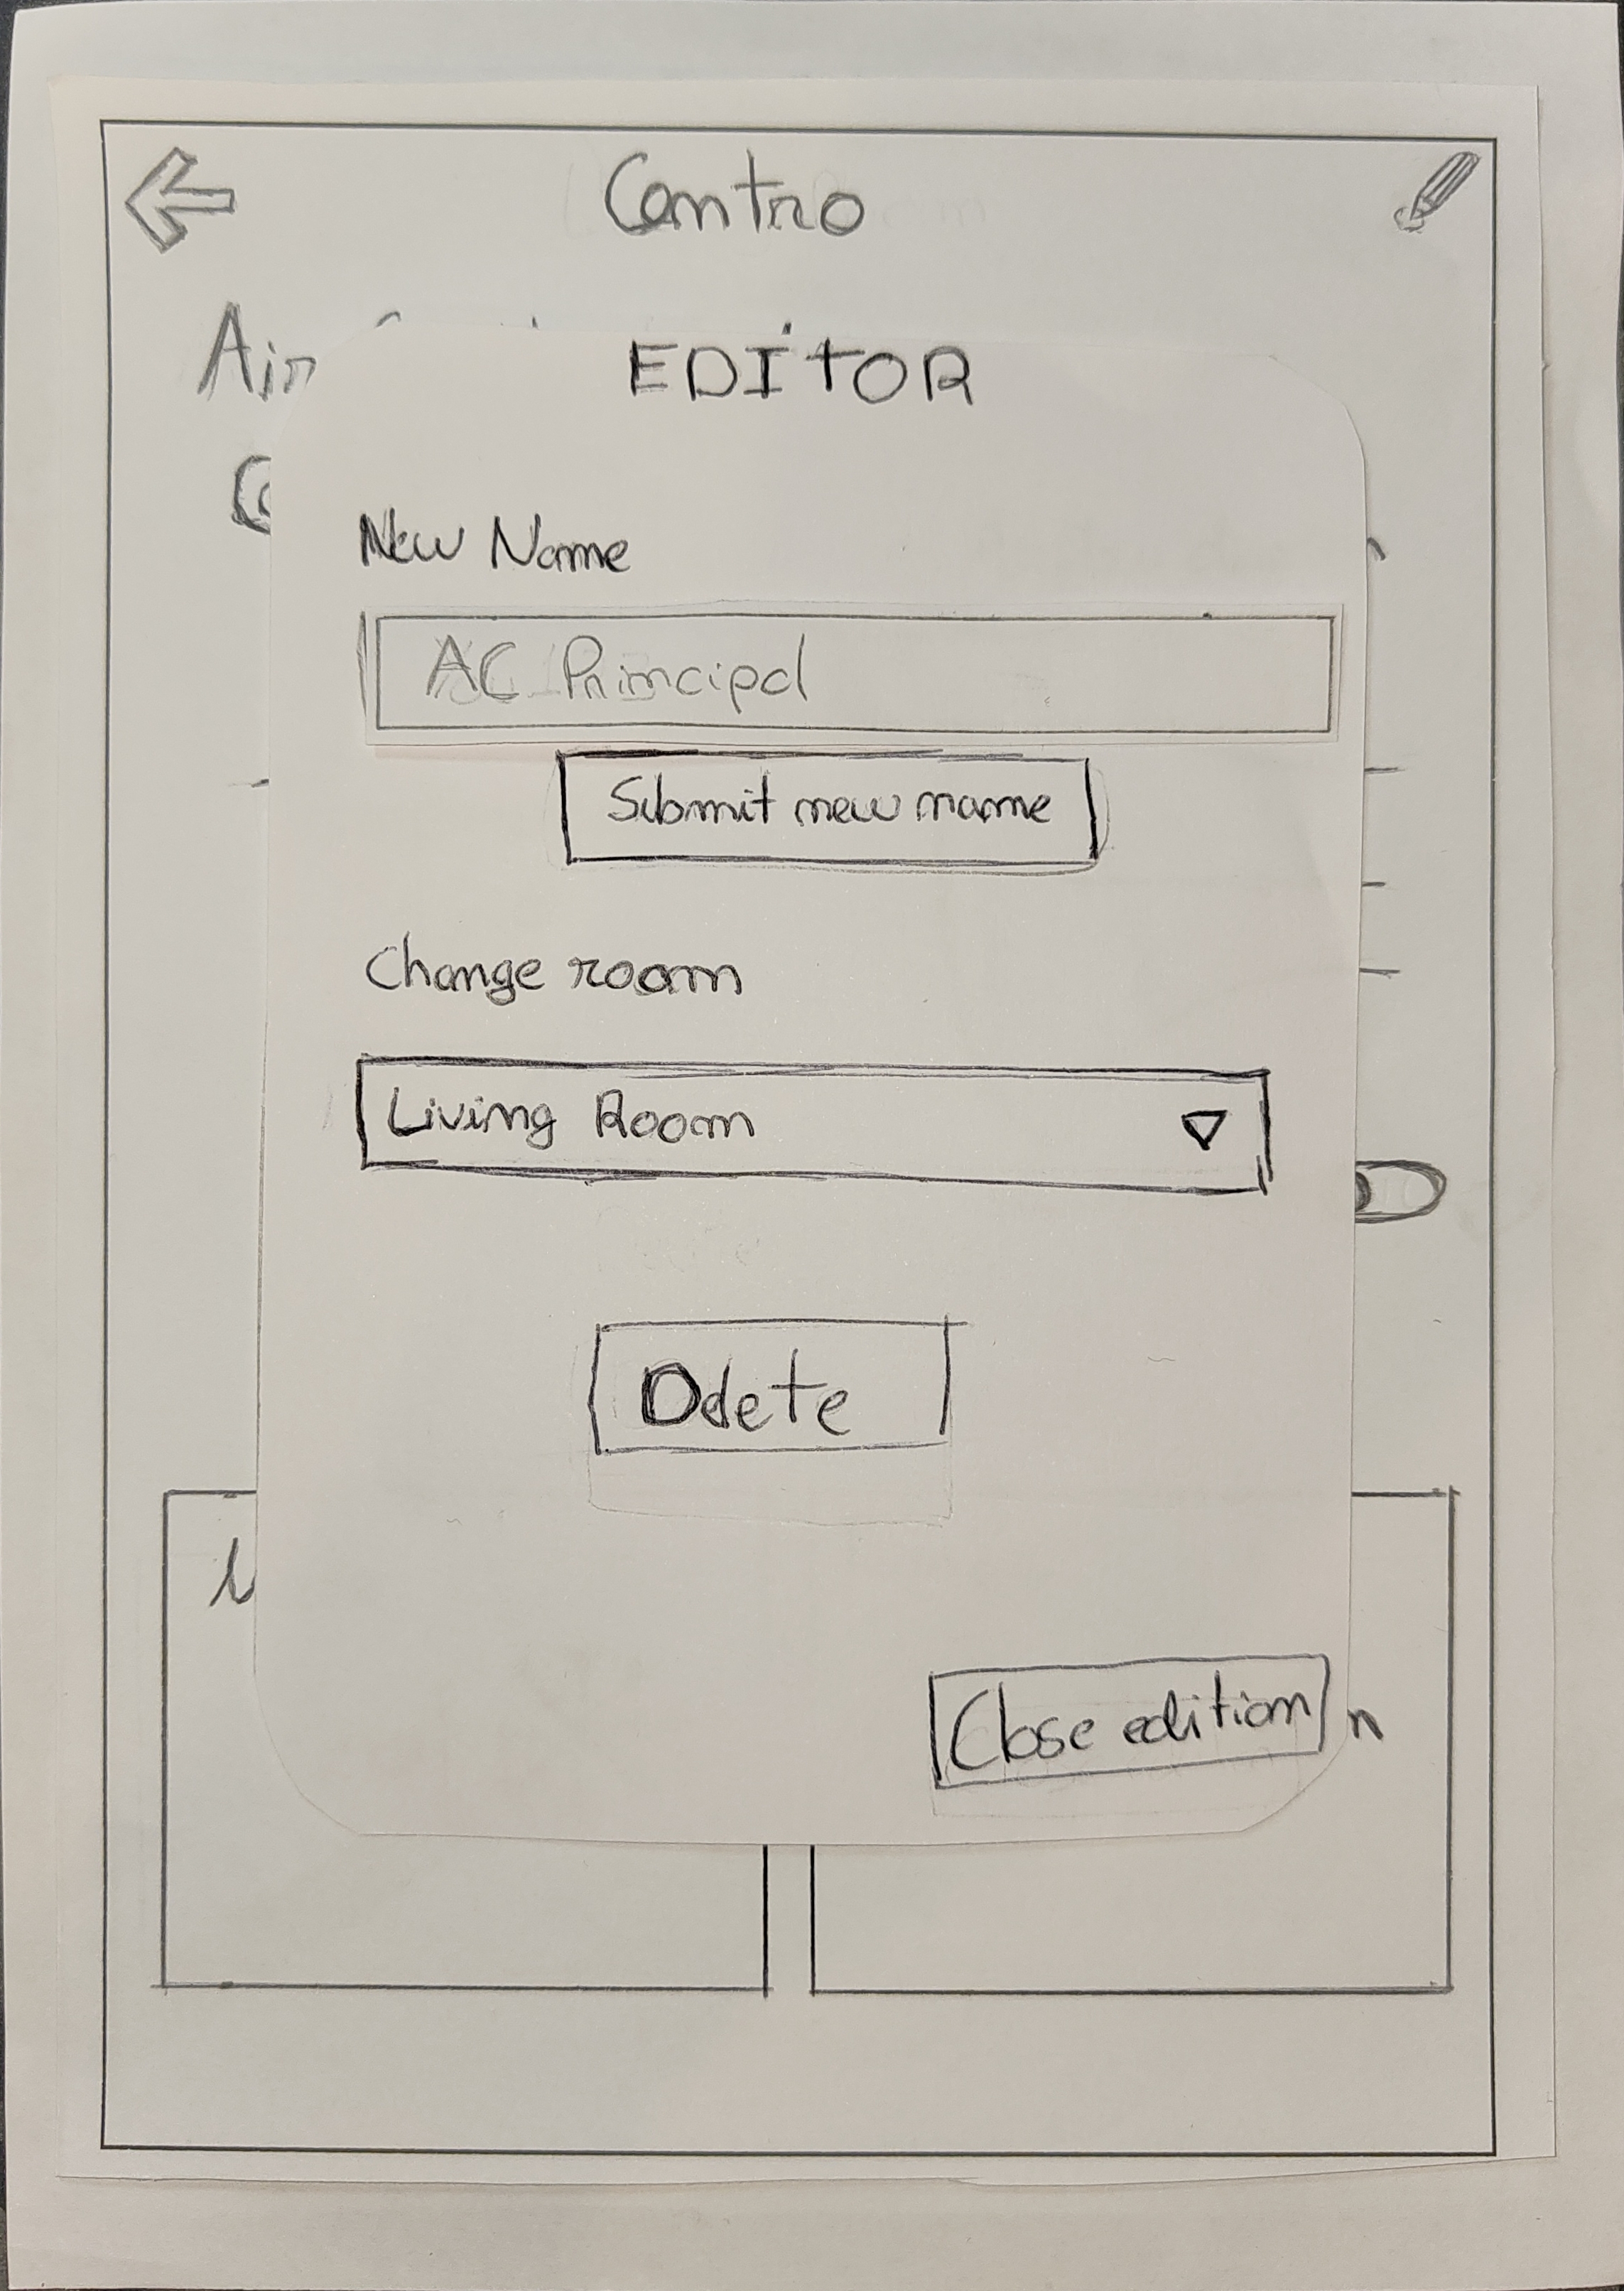 Contro
Air
EDITOR
New Name
AC Principal
Submit new name
Change room
Living Room
Delete
Close edition
n